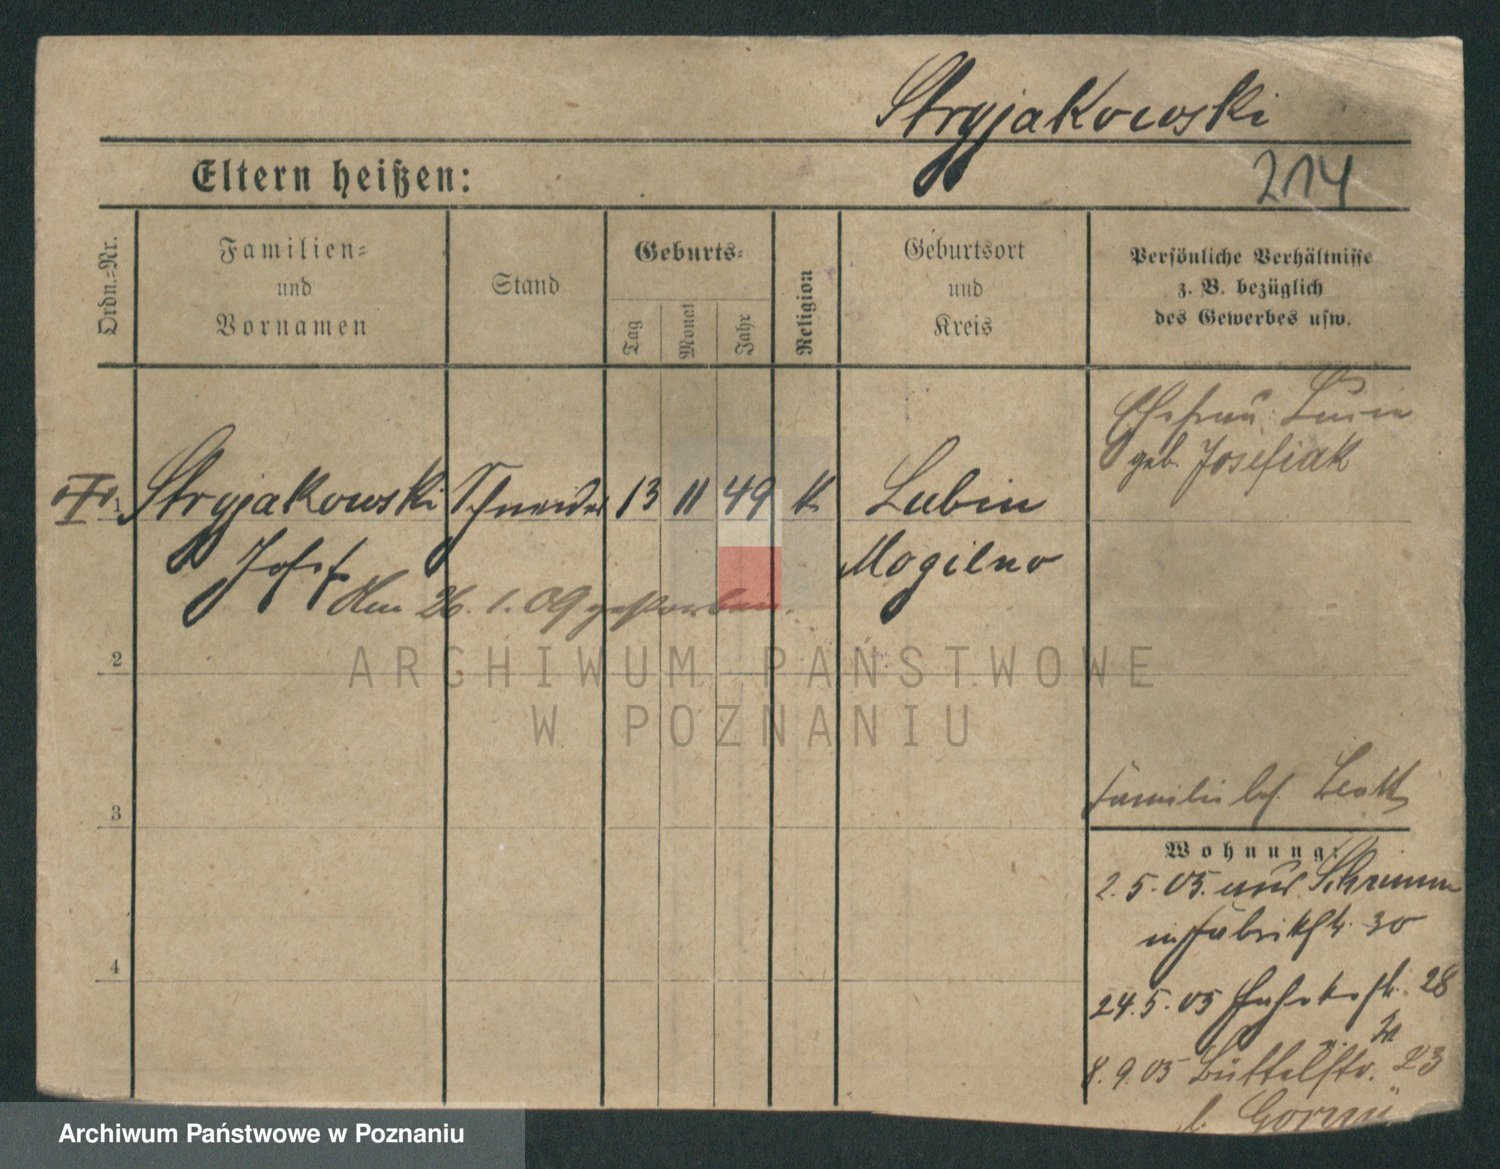 Stryjakowski
Eltern heißen:
214
Ordn.-Nr.
Familien-
und
Vornamen
Stand
Geburts-
Tag
Monat
Jahr
Religion
Geburtsort
und
Kreis
Persönliche Verhältnisse
z. B. bezüglich
des Gewerbes usw.
Ehefrau
geb. Josefiak
1 Stryjakowski Schneider 13 11 49 k. Lubin
Josef Mogilno
Am 26. 1. 09 gestorben.
2
3
4
Familie
Wohnung:
2. 5. 05. aus Schrimm
in Fabrikstr. 30
24. 5. 05 28
8. 9. 05 Büttelstr. 23
b.
ARCHIWUM PAŃSTWOWE
W POZNANIU
Archiwum Państwowe w Poznaniu